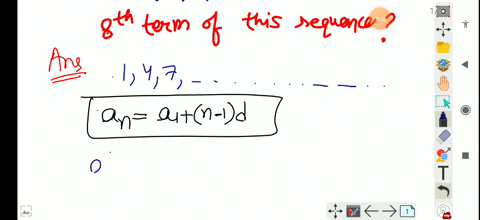 8th term of this sequence?
Ans
1, 4, 7, _ . . . . . . . . _ _ . . .
an = a1+(n-1)d
0
1
T